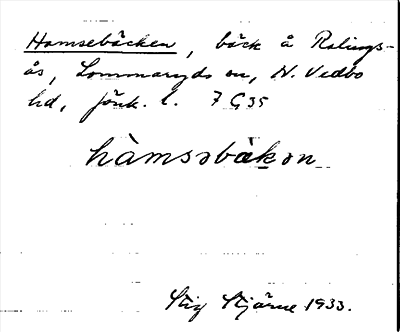 Hamsebäcken, bäck å Ralings-
ås, Lommaryds sn, N. Vedbo
hd, Jönk. l. 7 G35
hàmsəbàkən
Stig Stjärne 1933.